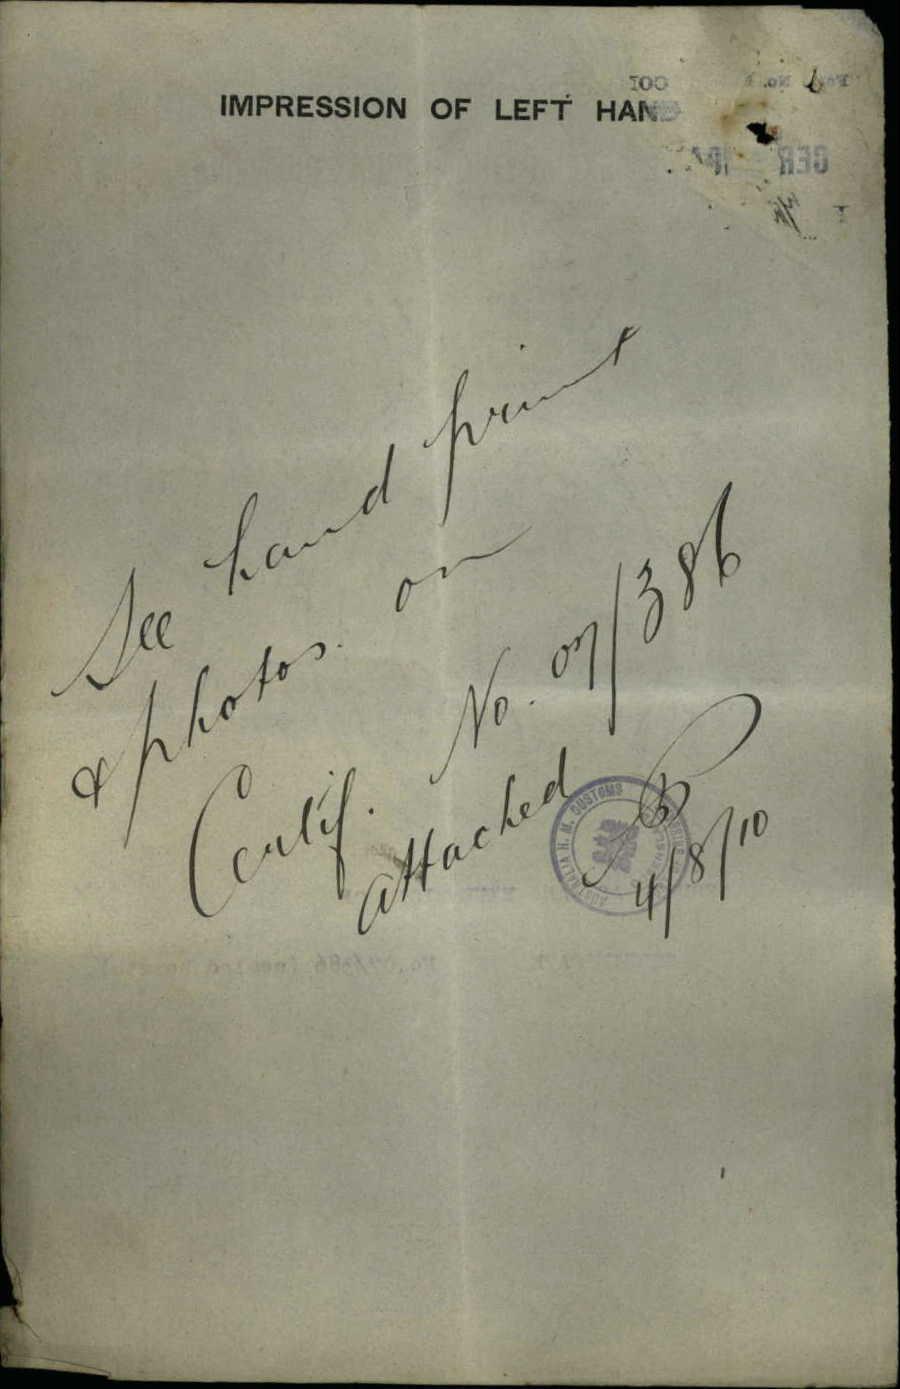 IMPRESSION OF LEFT HAND
See hand print
& photos. on
Certif. No. 07/386
attached
4/8/10
AUSTRALIA H. M. CUSTOMS